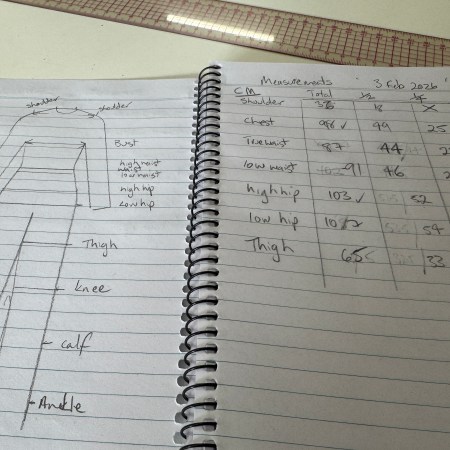 shoulder shoulder
Bust
high waist
waist
low waist
high hip
low hip
Thigh
knee
calf
Ankle
Measurements 3 Feb 2026
CM Total 1/2 1/4
Shoulder X
Chest 98 49 25
True waist 87 44
low waist 91 46
high hip 103 52
low hip 54
Thigh 65 33